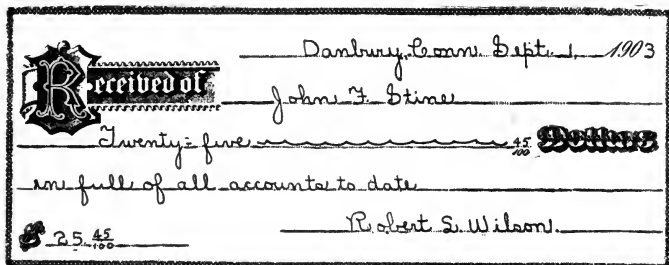 Danbury, Conn. Sept. 1, 1903
Received of John F. Stine
Twenty-five 45/100 Dollars
in full of all accounts to date
$ 25 45/100 Robert S. Wilson.